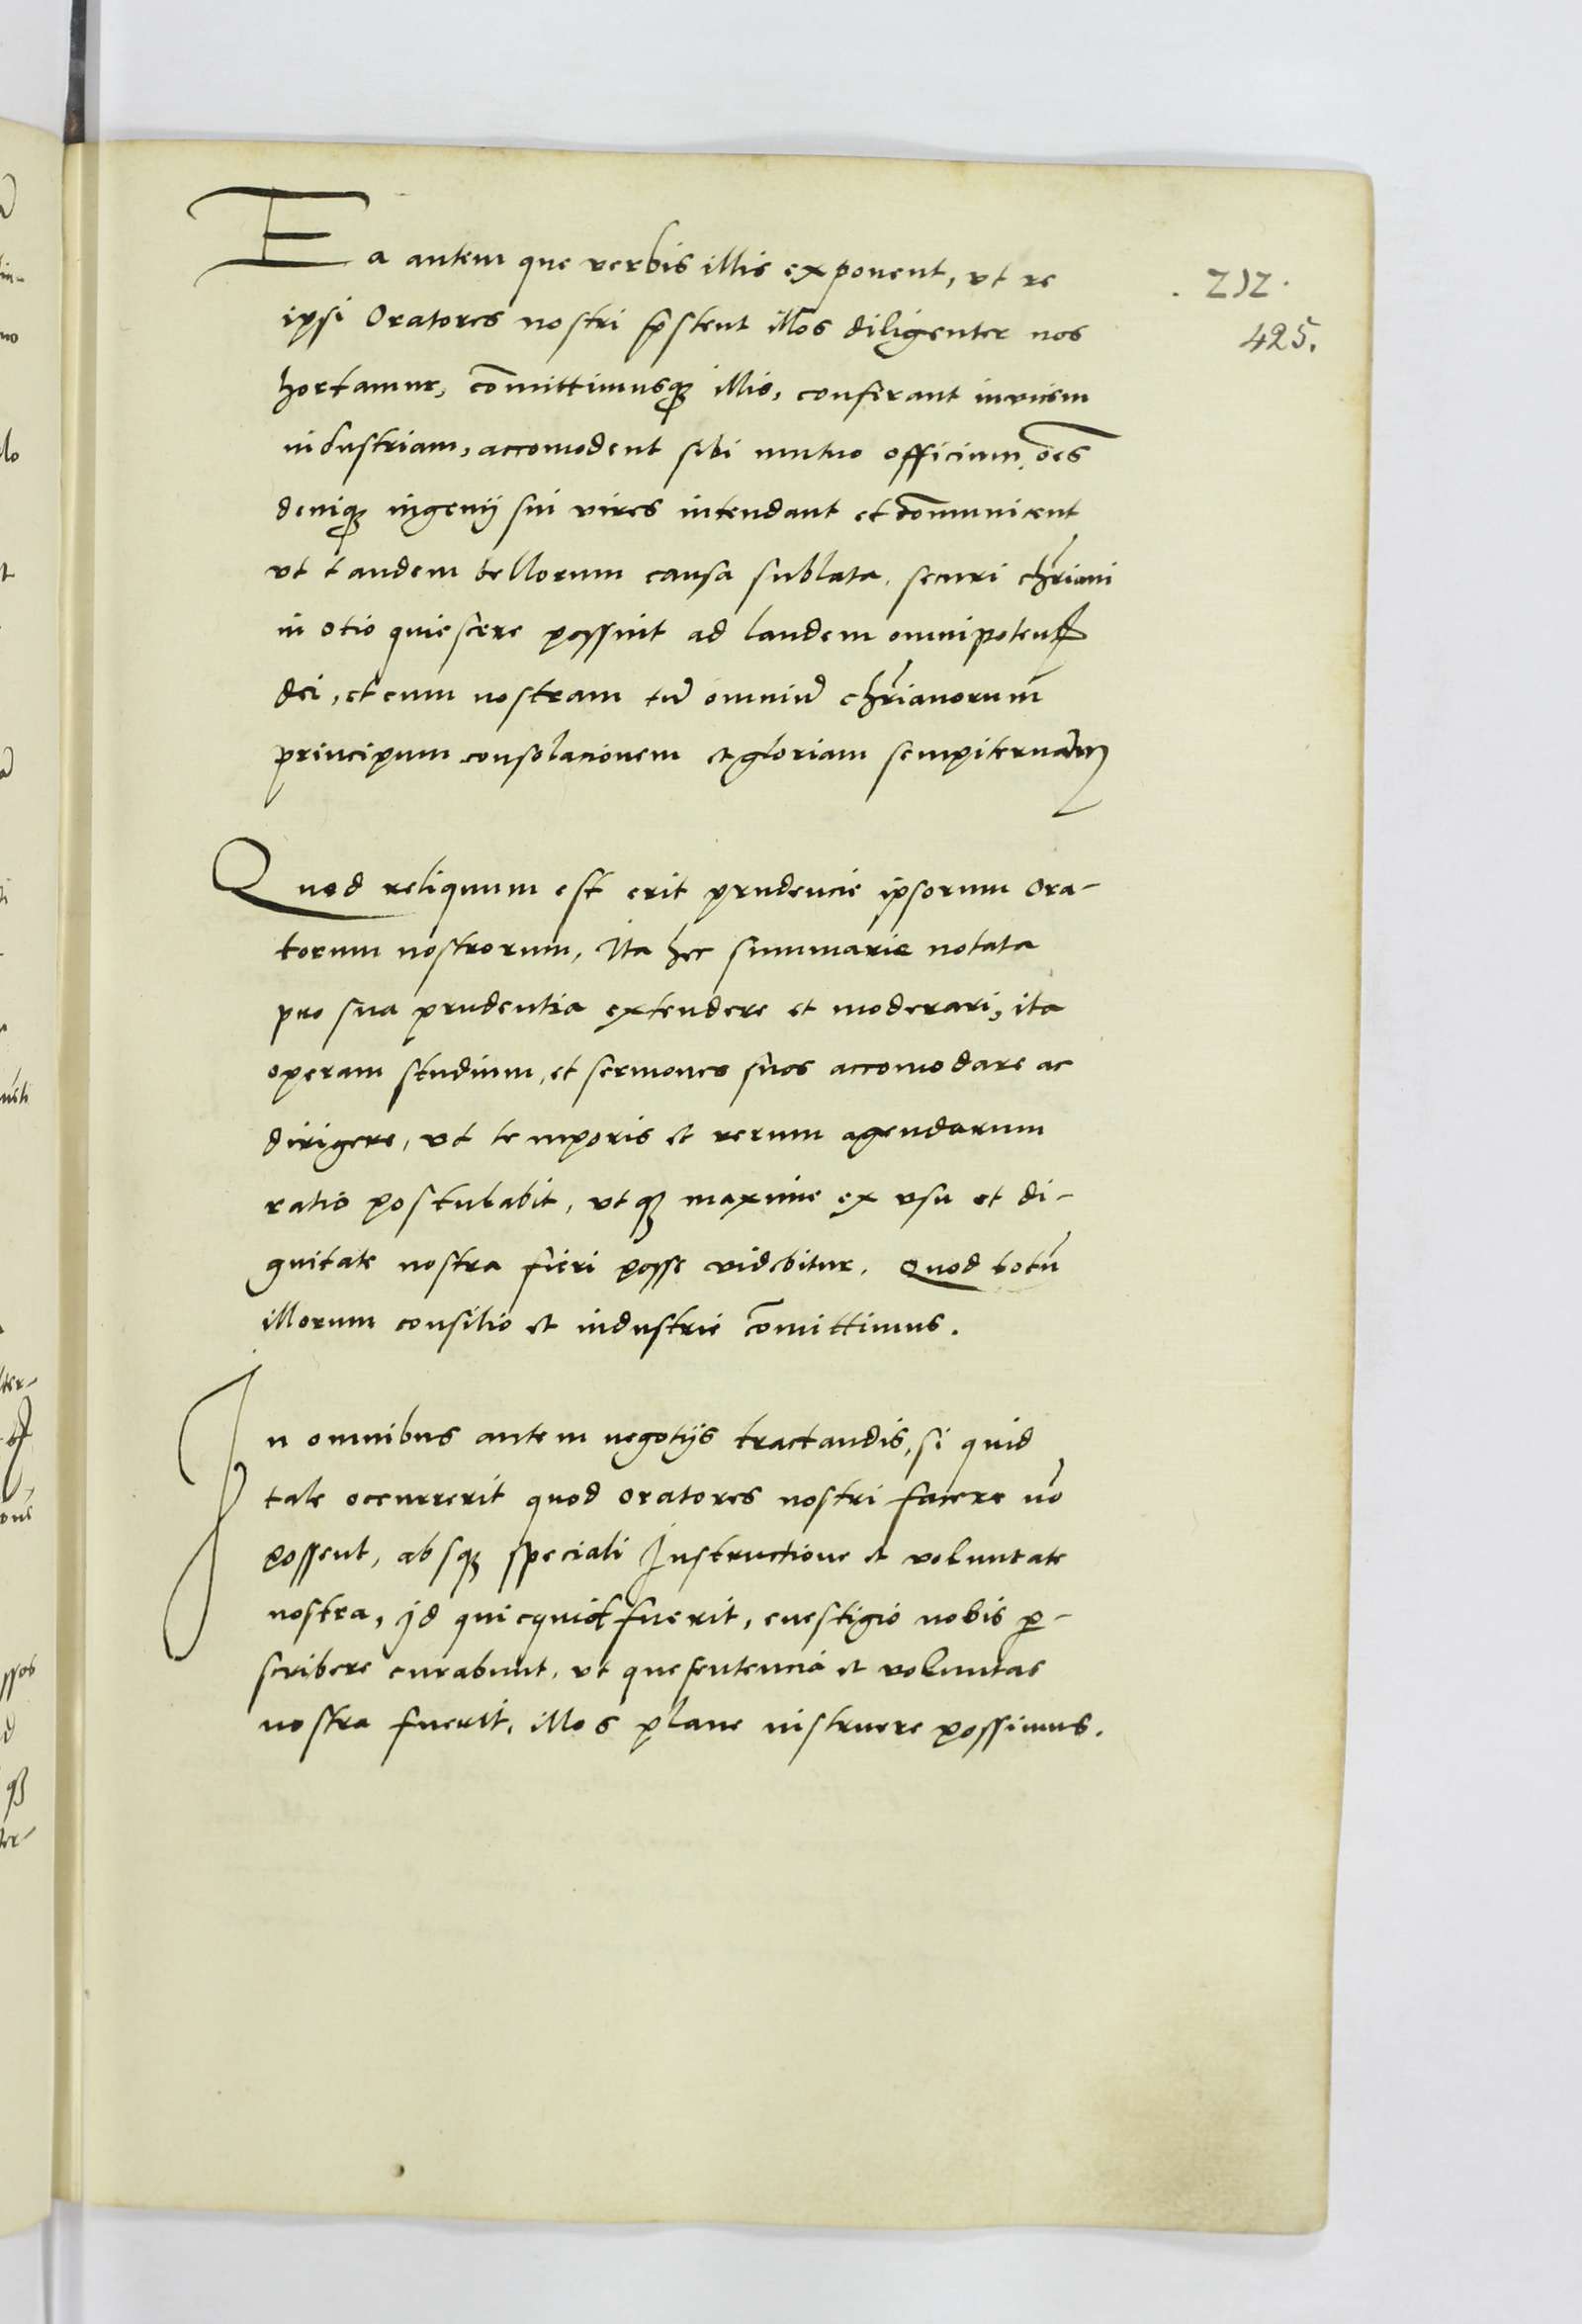 Ea autem que verbis illis exponent, vt re
ipsi Oratores nostri p̄stent illos diligenter nos
hortamur, com̄ittimusq₃ illis, conferant invicem
industriam, accomodent sibi mutuo officium, oēs
deniq₃ ingenij sui vires intendant et com̄unicent
vt tandem bellorum causa sublata, securi chr̄iani
in otio quiescere possint ad laudem omnipotentꝭ
dei, et cum nostram tū omniū chr̄ianorum
principum consolacionem et gloriam sempiternam
Quod reliquum est erit prudencie ipsorum Ora-
torum nostrorum, Ita hec summarie notata
pro sua prudentia extendere et moderari, ita
operam studium, et sermones suos accomodare ac
dirigere, vt temporis et rerum agendarum
ratio postulabit, vtq₃ maxime ex vsu et di-
gnitate nostra fieri posse videbitur. Quod totū
illorum consilio et industrie com̄ittimus.
In omnibus autem negotijs tractandis, si quid
tale occurrerit quod oratores nostri facere nō
possent, absq₃ speciali Instructione et voluntate
nostra, id quicquid fuerit, euestigio nobis ꝑ-
scribere curabunt, vt que sentencia et voluntas
nostra fuerit, illos plane instruere possimus.
. 212.
425.